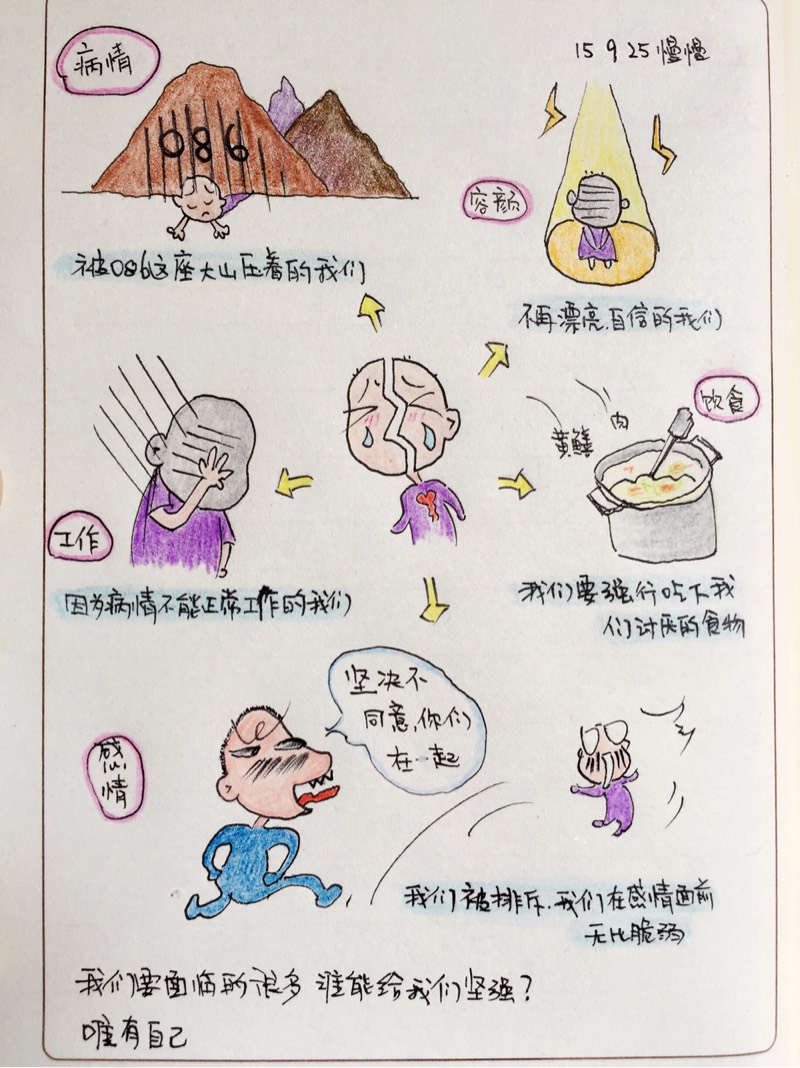 病情
15 9 25 慢慢
086
容颜
被086这座大山压着的我们
不再漂亮.自信的我们
饮食
黄鳝
肉
工作
因为病情不能正常工作的我们
我们要强行吃下我
们讨厌的食物
坚决不
同意,你们
在一起
感情
我们被排斥.我们在感情面前
无比脆弱
我们要面临的很多 谁能给我们坚强?
唯有自己